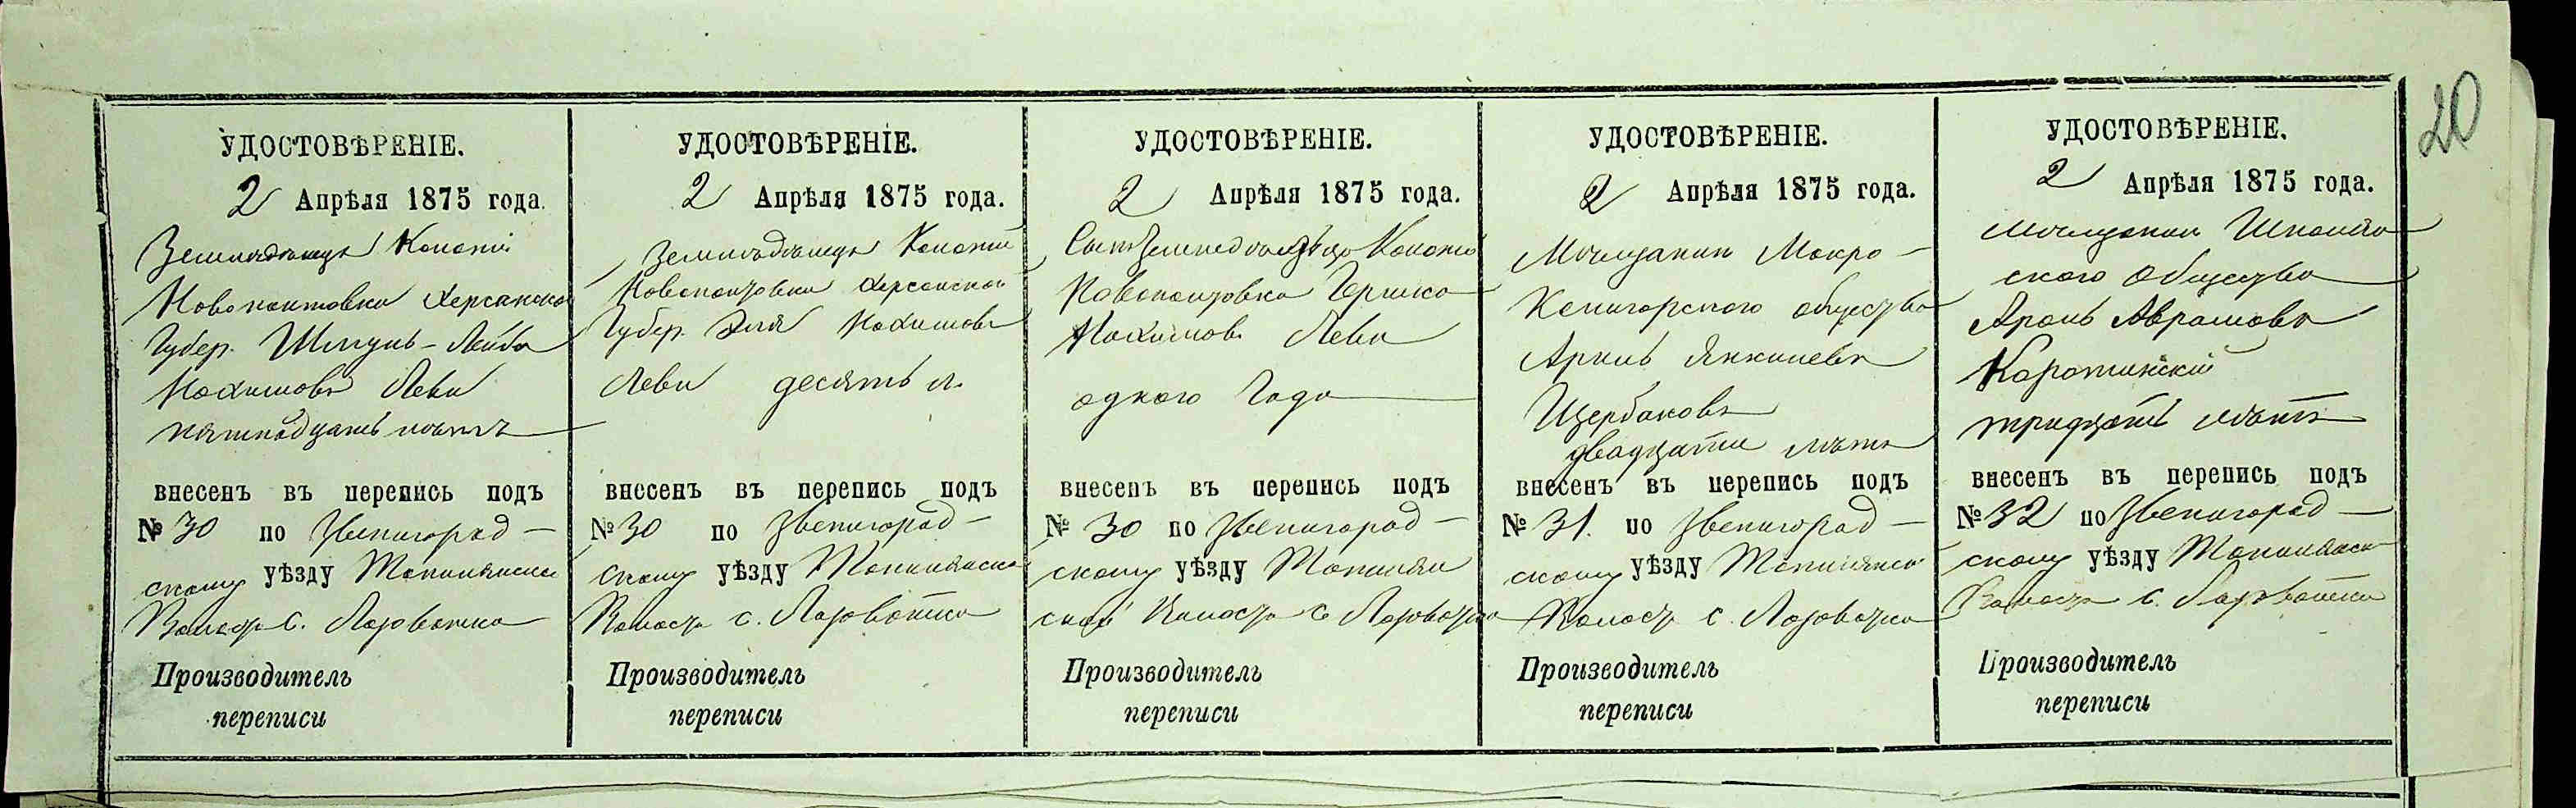 20
УДОСТОВѢРЕНІЕ.
2 Апрѣля 1875 года.
Земледѣлецъ Колоніи
Новополтовки Херсонской
Губер. Шмуль-Лейба
Нахимовъ Леви
пятнадцать лѣтъ
внесенъ въ перепись подъ
№ 30 по Звенигород-
скому уѣзду
Волост с. Лозоватка
Производитель
переписи
УДОСТОВѢРЕНІЕ.
2 Апрѣля 1875 года.
Земледѣлецъ Колоніи
Новополтовки Херсонской
Губер. Эля Нахимовъ
Леви десять л.
внесенъ въ перепись подъ
№ 30 по Звенигород-
скому уѣзду
Волость с. Лозоватка
Производитель
переписи
УДОСТОВѢРЕНІЕ.
2 Апрѣля 1875 года.
Сынъ Земледѣльца Колоніи
Новополтовка Гершко
Нахимовъ Леви
одного Года
внесенъ въ перепись подъ
№ 30 по Звенигород-
скому уѣзду
ской Волость с Лозоватка
Производитель
переписи
УДОСТОВѢРЕНІЕ.
2 Апрѣля 1875 года.
Мѣщанин Мокро-
Кемигорского общества
Аронъ Янкилевъ
Щербаковъ
двадцати лѣтъ
внесенъ въ перепись подъ
№ 31. по Звенигород-
скому уѣзду
Волость с. Лозоватка
Производитель
переписи
УДОСТОВѢРЕНІЕ.
2 Апрѣля 1875 года.
Мѣщанин Шполян
ского Общества
Аронъ Аврамовъ
Коротинскій
тридцать лѣтъ
внесенъ въ перепись подъ
№ 32 по Звенигород-
скому уѣзду
Волость с. Лозоватки
Производитель
переписи